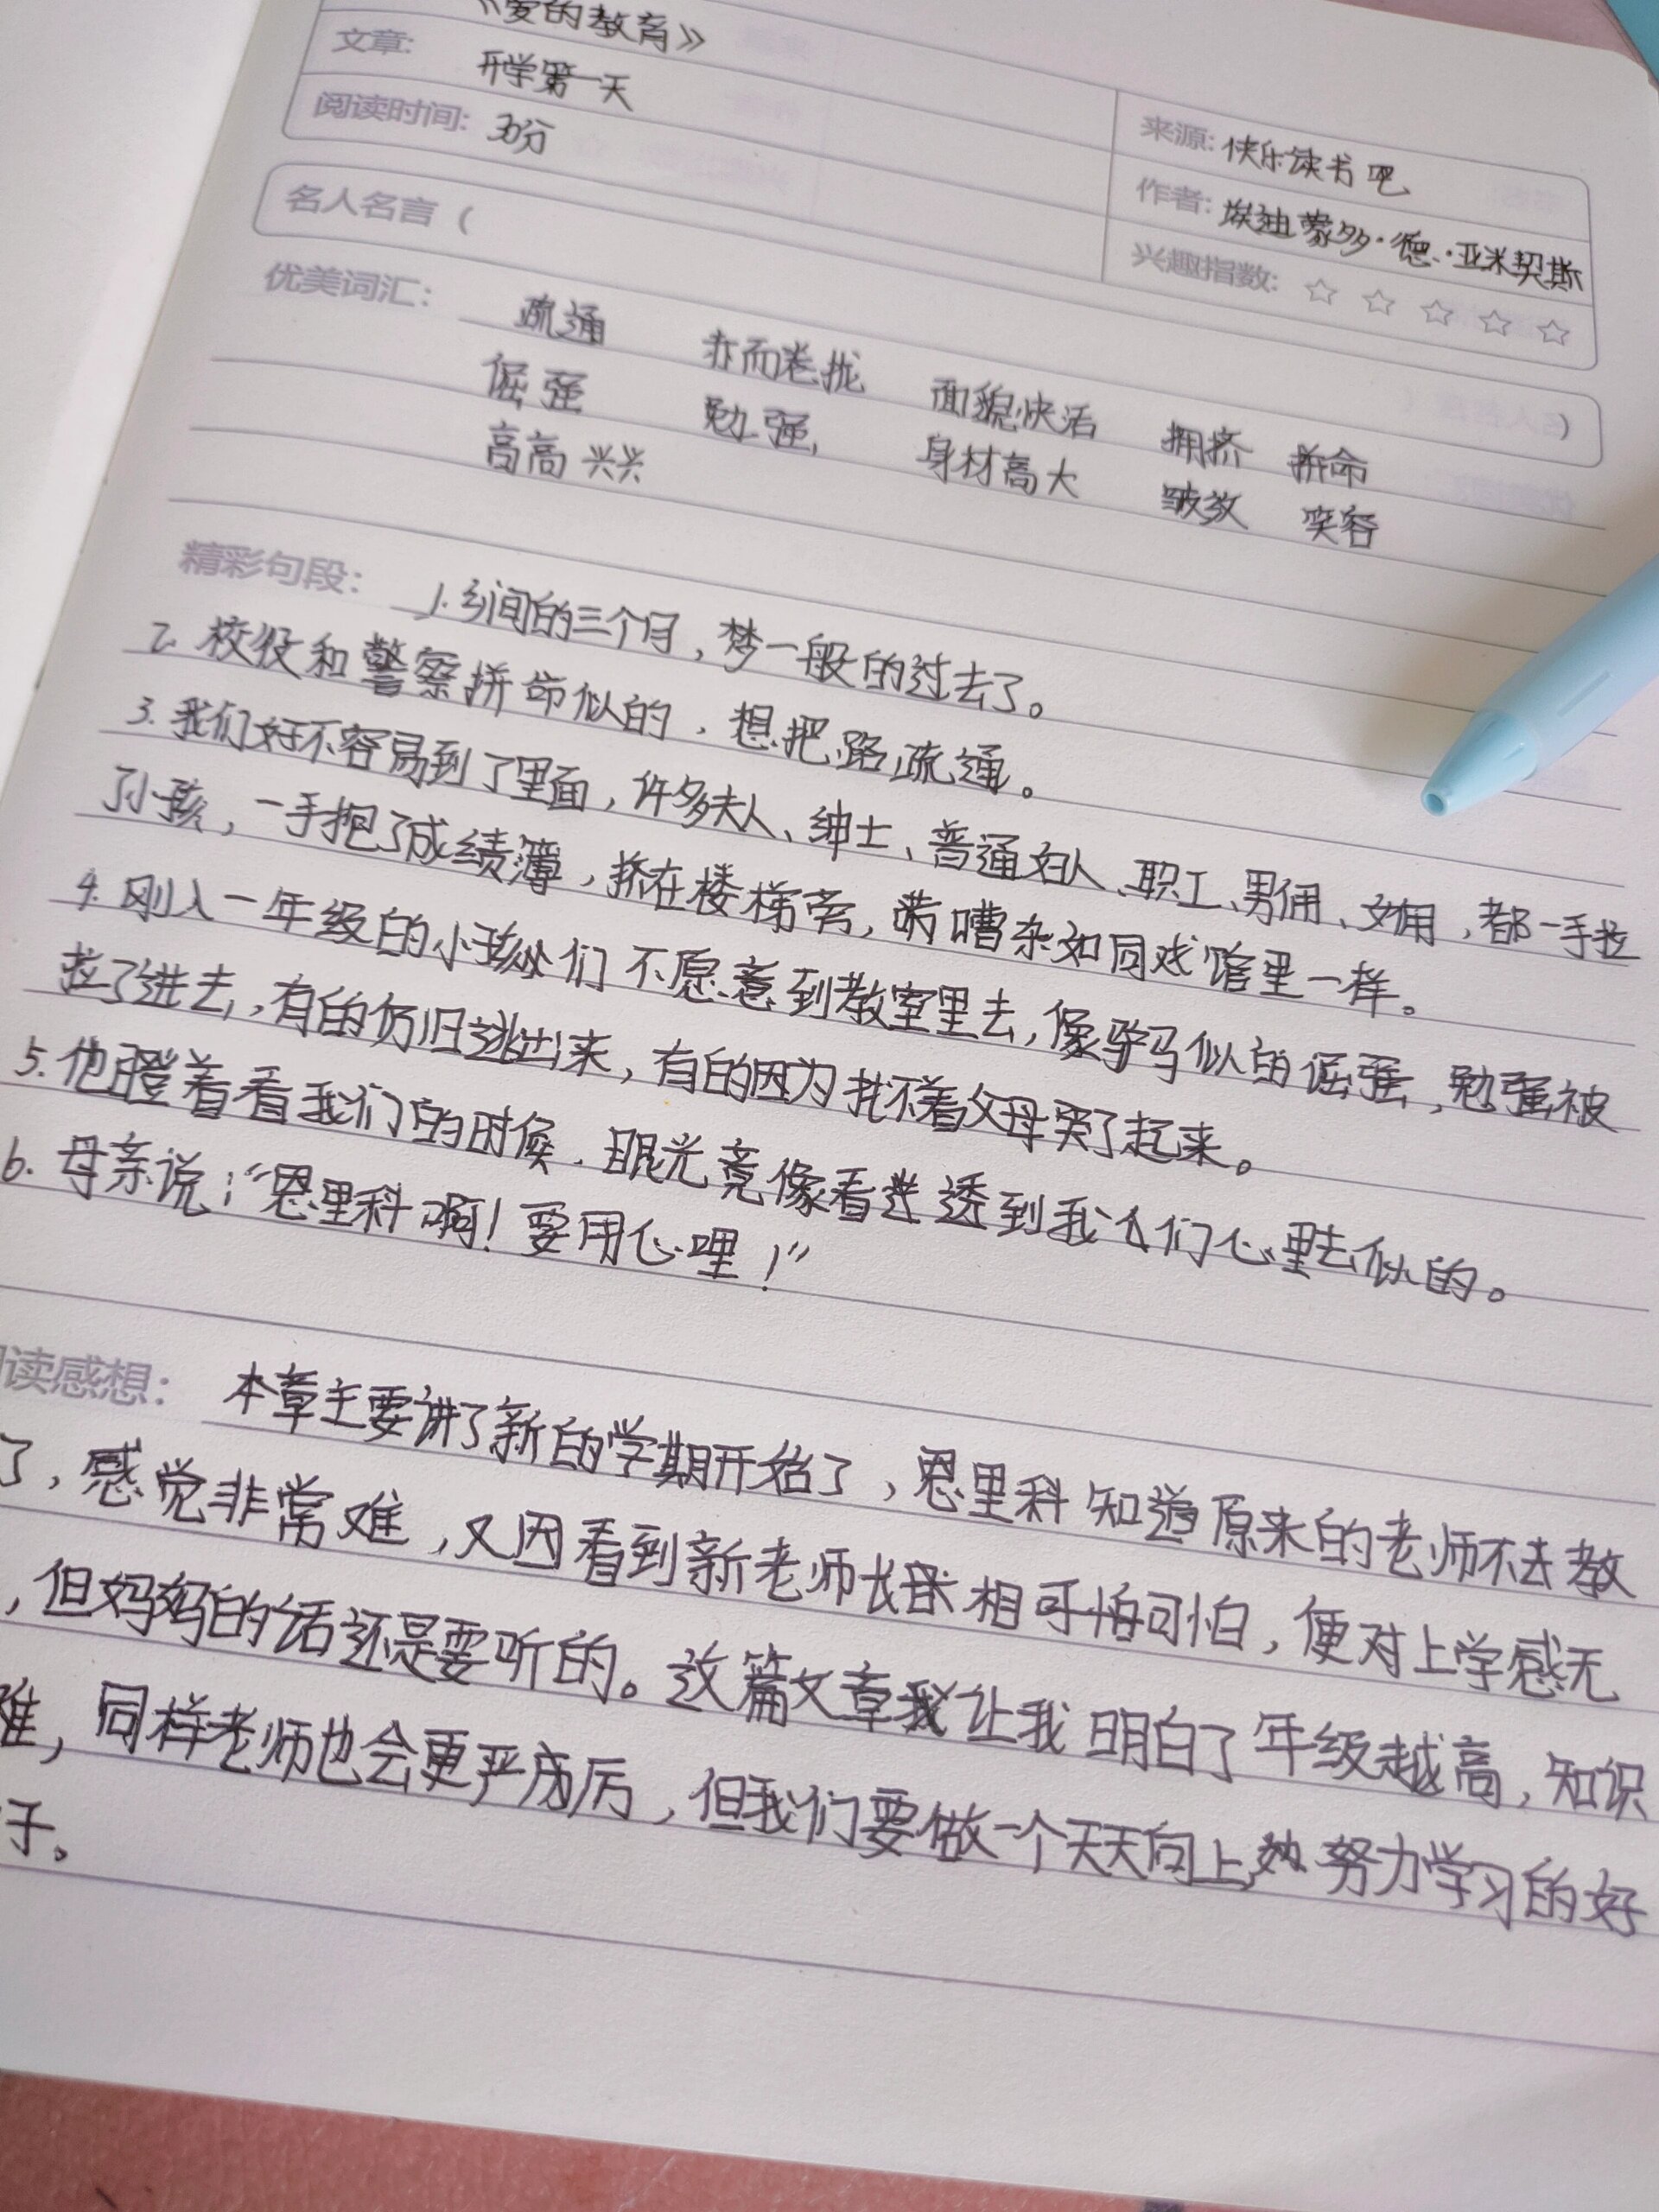 《爱的教育》
文章: 开学第一天
来源: 快乐读书吧
阅读时间: 30分
作者: 埃迪蒙多·德·亚米契斯
兴趣指数: ☆ ☆ ☆ ☆ ☆
名人名言（ ）
优美词汇: 疏通 赤而卷拢 面貌快活 拥挤 拼命
倔强 勉强 身材高大 皱纹 笑容
高高兴兴
精彩句段: 1. 乡间的三个月，梦一般的过去了。
2. 校役和警察拼命似的，想把路疏通。
3. 我们好不容易到了里面，许多夫人、绅士、普通妇人、职工、男佣、女佣，都一手拉
了小孩，一手抱了成绩簿，挤在楼梯旁，嘈杂如同戏馆里一样。
4. 刚入一年级的小孩们不愿意到教室里去，像驴马似的倔强，勉强被
拉了进去，有的仍旧逃出来，有的因为找不着父母哭了起来。
5. 他瞪着看我们的时候，眼光竟像看透到我们心里去似的。
6. 母亲说：“恩里科啊！要用心哩！”
阅读感想: 本章主要讲了新的学期开始了，恩里科知道原来的老师不去教
了，感觉非常难，又因看到新老师长相可怕，便对上学感无
，但妈妈的话还是要听的。这篇文章让我明白了年级越高，知识
难，同样老师也会更严厉，但我们要做一个天天向上，努力学习的好
子。